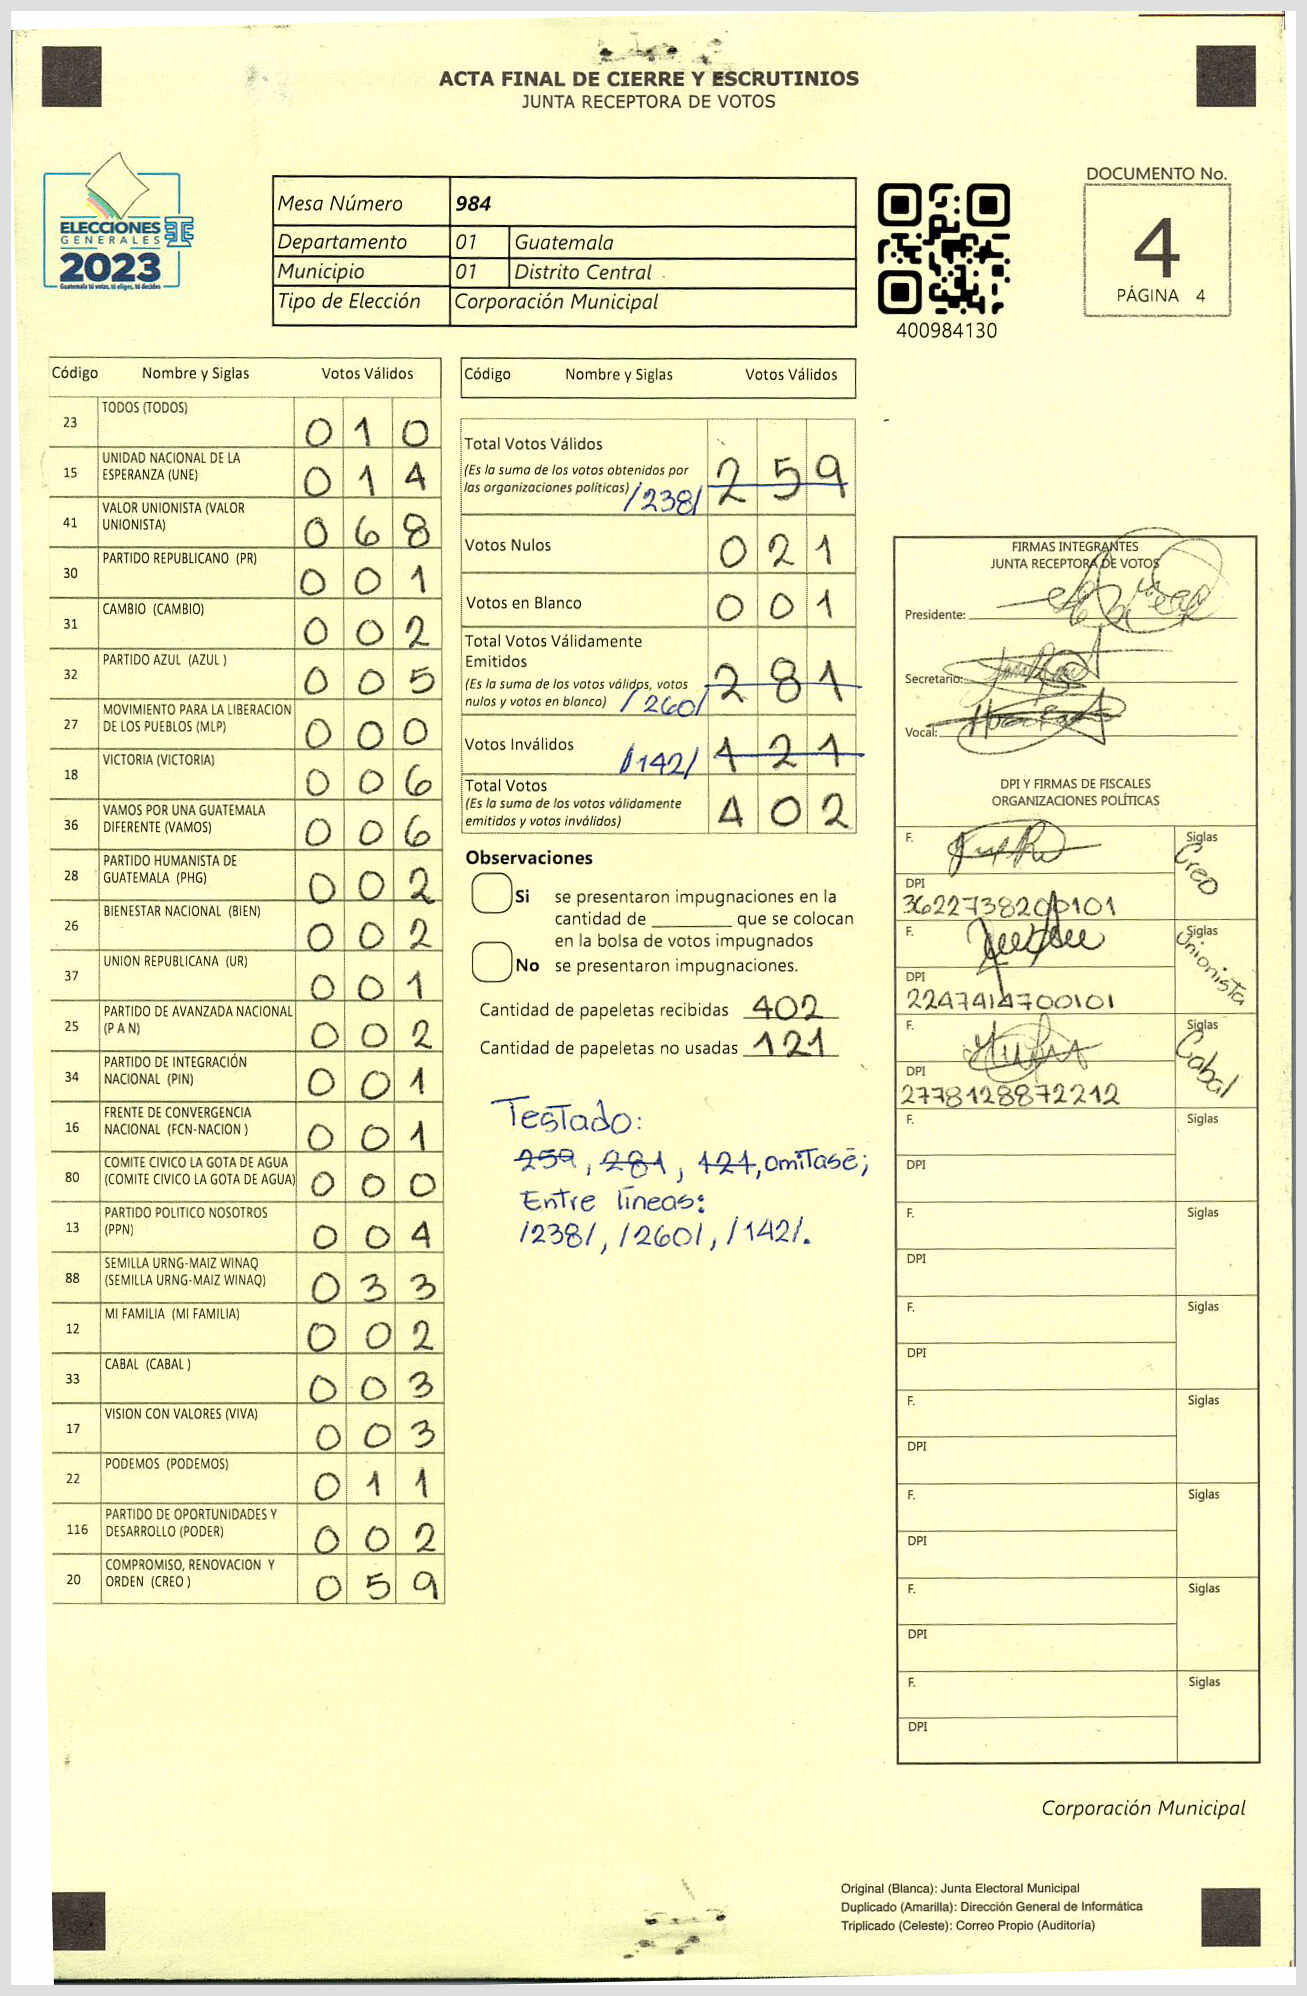 ACTA FINAL DE CIERRE Y ESCRUTINIOS
JUNTA RECEPTORA DE VOTOS
ELECCIONES
GENERALES
2023
Guatemala tú votas, tú eliges, tú decides
Mesa Número 984
Departamento 01 Guatemala
Municipio 01 Distrito Central
Tipo de Elección Corporación Municipal
400984130
DOCUMENTO No.
4
PÁGINA 4
Código Nombre y Siglas Votos Válidos
23 TODOS (TODOS) 0 1 0
15 UNIDAD NACIONAL DE LA
ESPERANZA (UNE) 0 1 4
41 VALOR UNIONISTA (VALOR
UNIONISTA) 0 6 8
30 PARTIDO REPUBLICANO (PR) 0 0 1
31 CAMBIO (CAMBIO) 0 0 2
32 PARTIDO AZUL (AZUL ) 0 0 5
27 MOVIMIENTO PARA LA LIBERACION
DE LOS PUEBLOS (MLP) 0 0 0
18 VICTORIA (VICTORIA) 0 0 6
36 VAMOS POR UNA GUATEMALA
DIFERENTE (VAMOS) 0 0 6
28 PARTIDO HUMANISTA DE
GUATEMALA (PHG) 0 0 2
26 BIENESTAR NACIONAL (BIEN) 0 0 2
37 UNION REPUBLICANA (UR) 0 0 1
25 PARTIDO DE AVANZADA NACIONAL
(P A N) 0 0 2
34 PARTIDO DE INTEGRACIÓN
NACIONAL (PIN) 0 0 1
16 FRENTE DE CONVERGENCIA
NACIONAL (FCN-NACION ) 0 0 1
80 COMITE CIVICO LA GOTA DE AGUA
(COMITE CIVICO LA GOTA DE AGUA) 0 0 0
13 PARTIDO POLITICO NOSOTROS
(PPN) 0 0 4
88 SEMILLA URNG-MAIZ WINAQ
(SEMILLA URNG-MAIZ WINAQ) 0 3 3
12 MI FAMILIA (MI FAMILIA) 0 0 2
33 CABAL (CABAL ) 0 0 3
17 VISION CON VALORES (VIVA) 0 0 3
22 PODEMOS (PODEMOS) 0 1 1
116 PARTIDO DE OPORTUNIDADES Y
DESARROLLO (PODER) 0 0 2
20 COMPROMISO, RENOVACION Y
ORDEN (CREO ) 0 5 9
Código Nombre y Siglas Votos Válidos
Total Votos Válidos
(Es la suma de los votos obtenidos por
las organizaciones políticas) /238/ 2 5 9
Votos Nulos 0 2 1
Votos en Blanco 0 0 1
Total Votos Válidamente
Emitidos
(Es la suma de los votos válidos, votos
nulos y votos en blanco) /260/ 2 8 1
Votos Inválidos /142/ 1 2 1
Total Votos
(Es la suma de los votos válidamente
emitidos y votos inválidos) 4 0 2
Observaciones
Si se presentaron impugnaciones en la
cantidad de ________ que se colocan
en la bolsa de votos impugnados
No se presentaron impugnaciones.
Cantidad de papeletas recibidas 402
Cantidad de papeletas no usadas 121
Testado:
259, 281, 121, omitase;
Entre líneas:
/238/, /260/, /142/.
FIRMAS INTEGRANTES
JUNTA RECEPTORA DE VOTOS
Presidente:
Secretario:
Vocal:
DPI Y FIRMAS DE FISCALES
ORGANIZACIONES POLÍTICAS
F. Siglas
Creo
DPI
3622738200101
F. Siglas
Unionista
DPI
2247414700101
F. Siglas
Cabal
DPI
2778128872212
F. Siglas
DPI
F. Siglas
DPI
F. Siglas
DPI
F. Siglas
DPI
F. Siglas
DPI
F. Siglas
DPI
F. Siglas
DPI
Corporación Municipal
Original (Blanca): Junta Electoral Municipal
Duplicado (Amarilla): Dirección General de Informática
Triplicado (Celeste): Correo Propio (Auditoría)